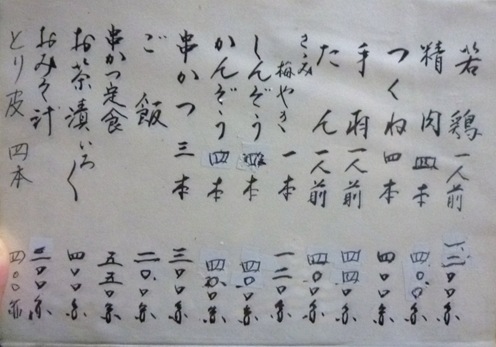 若鶏 一人前 一二〇〇円
精肉 四本 四〇〇円
つくね 四本 四〇〇円
手羽 一人前 四四〇円
たん 一人前 四〇〇円
ささみ梅やき 一本 一二〇円
しんぞう 四本 四〇〇円
かんぞう 四本 四〇〇円
串かつ 三本 三〇〇円
ご飯 二〇〇円
串かつ定食 五五〇円
お茶漬いろ〱 四〇〇円
おみそ汁 二〇〇円
とり皮 四本 四〇〇円